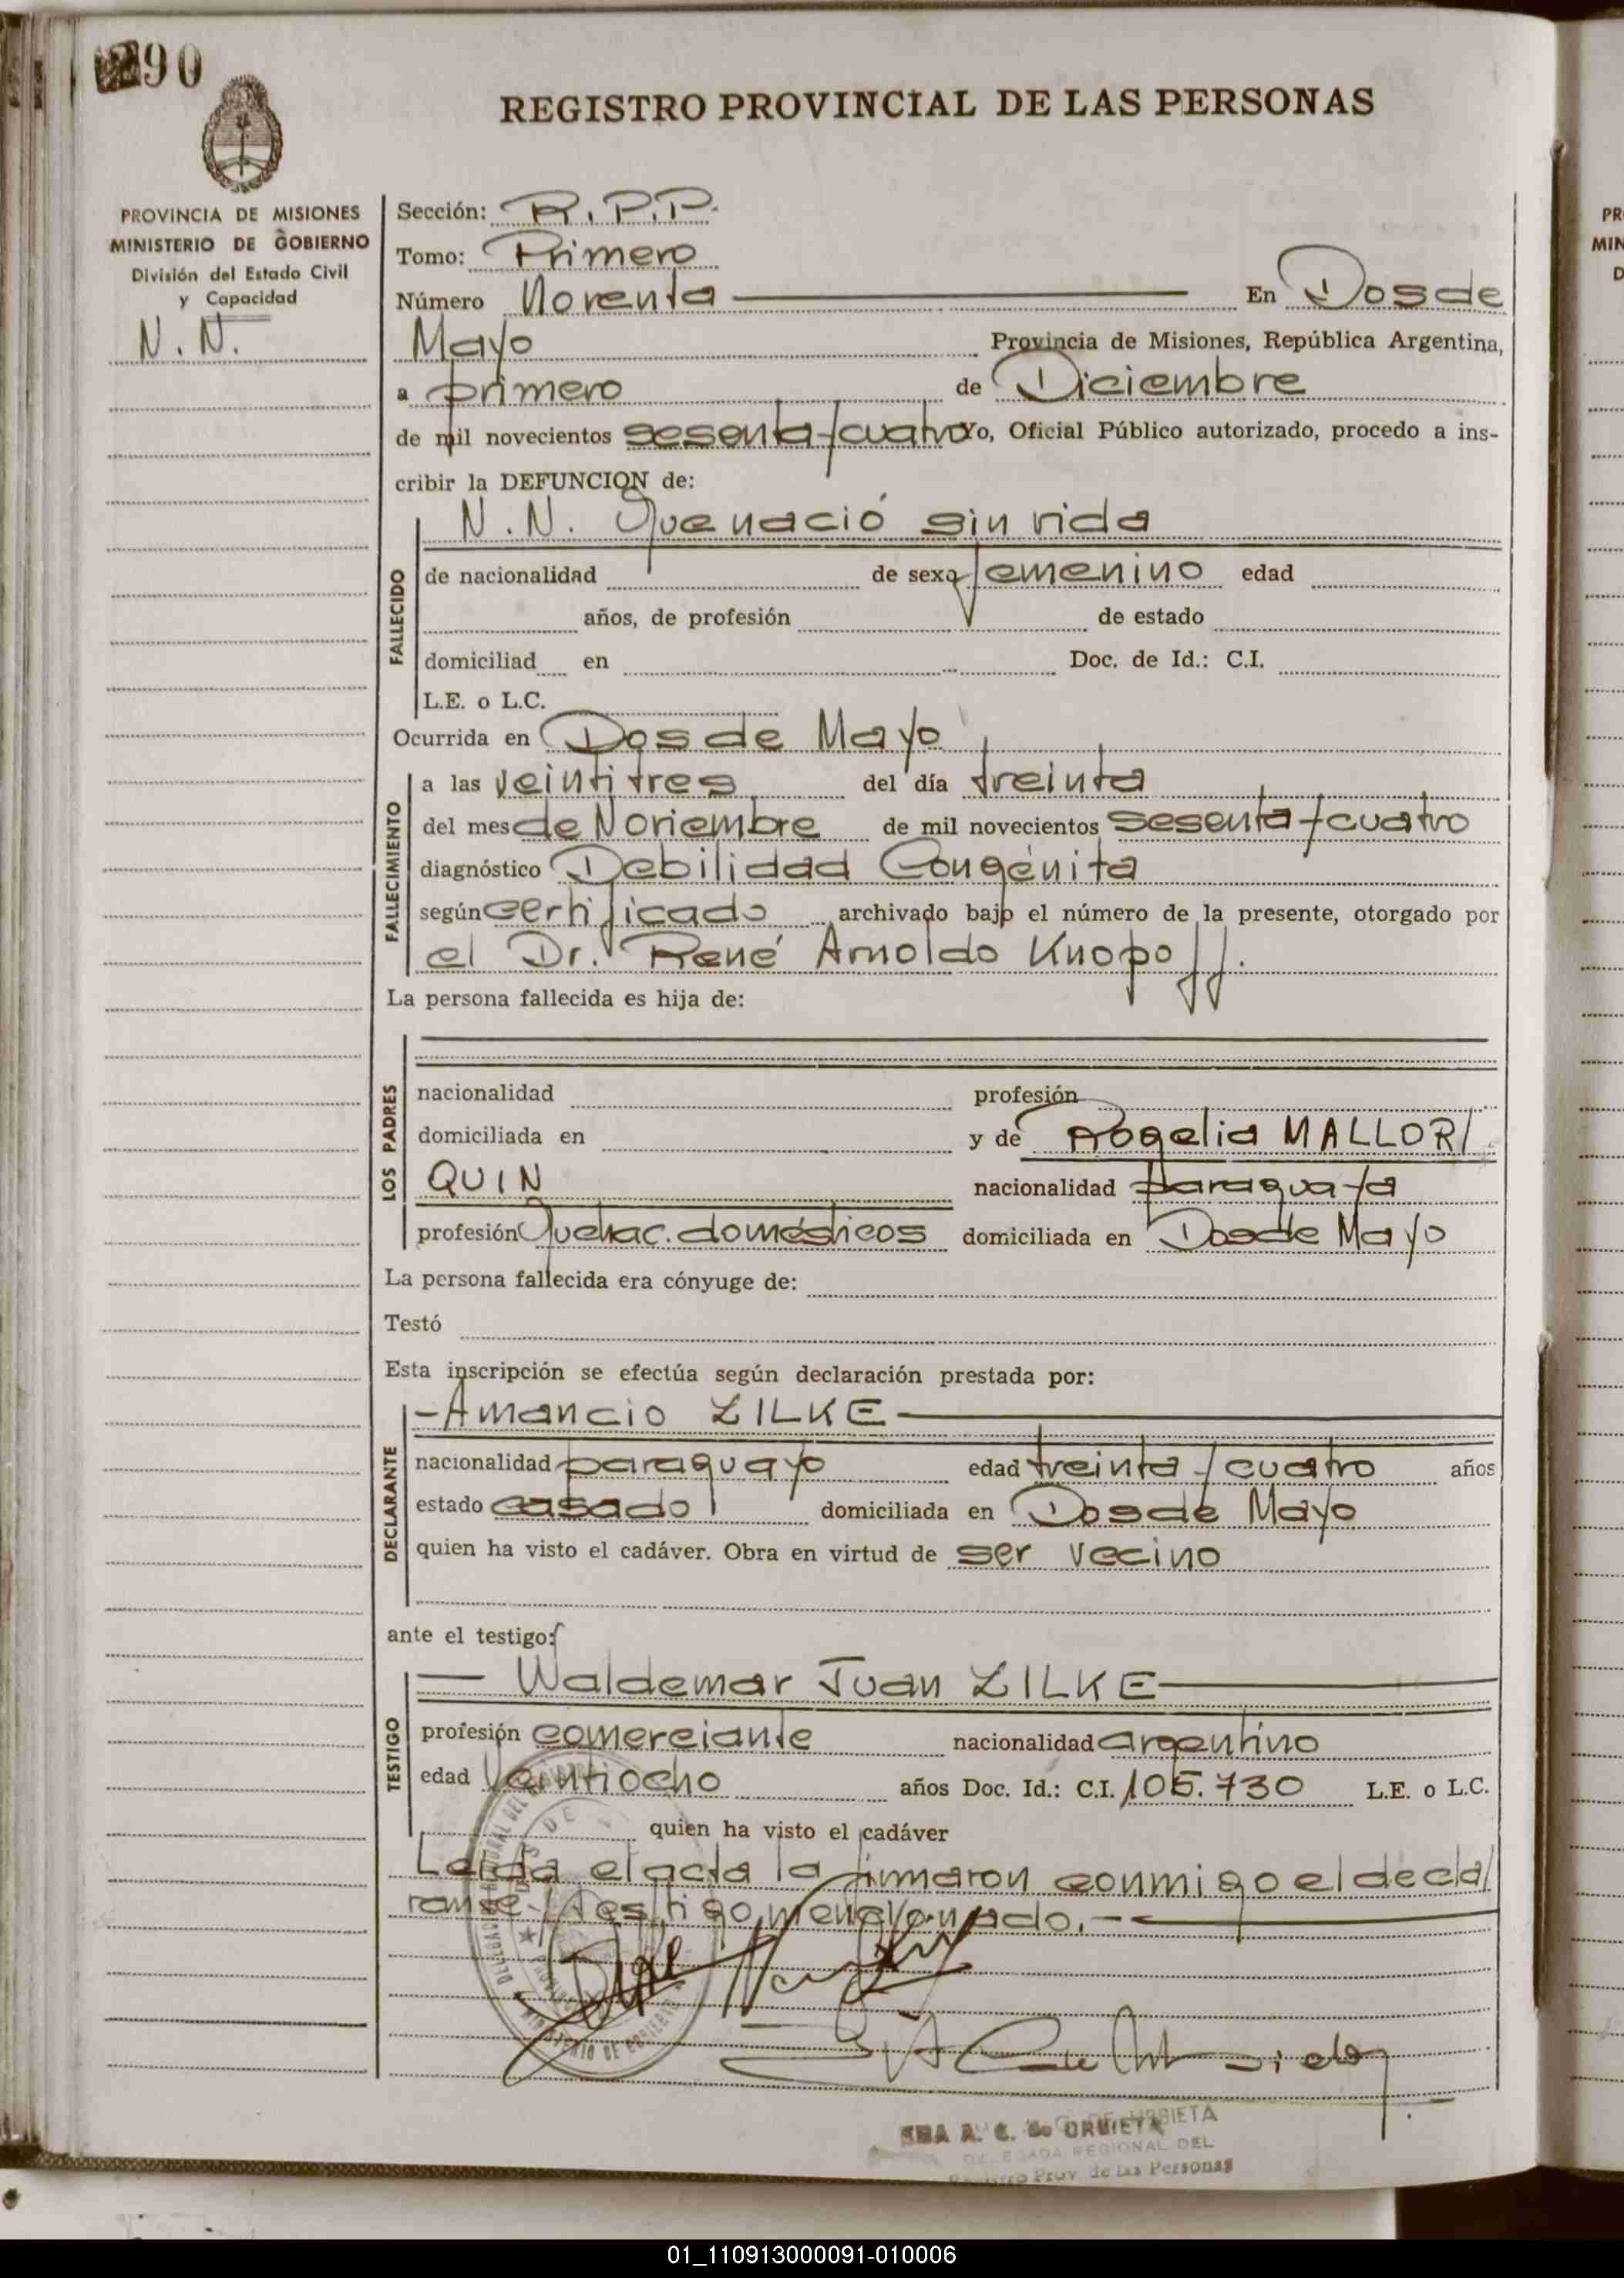 90
REGISTRO PROVINCIAL DE LAS PERSONAS
PROVINCIA DE MISIONES
MINISTERIO DE GOBIERNO
División del Estado Civil
y Capacidad
N. N.
Sección: R.P.P.
Tomo: Primero
Número Noventa En Dos de
Mayo Provincia de Misiones, República Argentina,
a primero de Diciembre
de mil novecientos sesenta y cuatro Yo, Oficial Público autorizado, procedo a ins-
cribir la DEFUNCION de:
FALLECIDO
N.N. Que nació sin vida
de nacionalidad de sexo femenino edad
años, de profesión de estado
domiciliad en Doc. de Id.: C.I.
L.E. o L.C.
Ocurrida en Dos de Mayo
FALLECIMIENTO
a las veintitres del día treinta
del mes de Noviembre de mil novecientos sesenta y cuatro
diagnóstico Debilidad Congénita
según certificado archivado bajo el número de la presente, otorgado por
el Dr. René Arnoldo Knopoff.
La persona fallecida es hija de:
LOS PADRES
nacionalidad profesión
domiciliada en y de Rogelia MALLOR/
QUIN nacionalidad paraguaya
profesión Quehac. domésticos domiciliada en Dos de Mayo
La persona fallecida era cónyuge de:
Testó
Esta inscripción se efectúa según declaración prestada por:
DECLARANTE
-Amancio ZILKE
nacionalidad paraguayo edad treinta y cuatro años
estado casado domiciliada en Dos de Mayo
quien ha visto el cadáver. Obra en virtud de ser vecino
ante el testigo:
TESTIGO
Waldemar Juan ZILKE
profesión comerciante nacionalidad argentino
edad veintiocho años Doc. Id.: C.I. 105.730 L.E. o L.C.
quien ha visto el cadáver
Leida el acta la firmaron conmigo el decla/
rante y testigo mencionado.-
MINISTERIO DE GOBIERNO
SRA A. C. de URBIETA
DELEGADA REGIONAL DEL
Registro Prov. de las Personas
PR
MIN
D
01_110913000091-010006